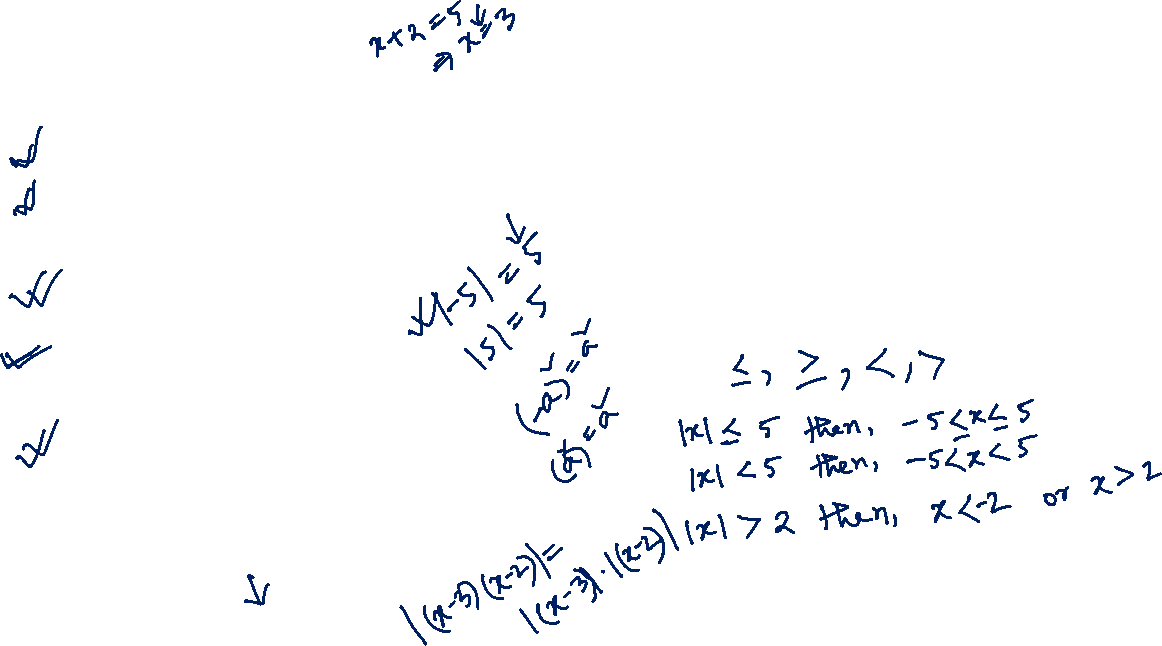 x+2=5
⇒ x=3
|-5| = 5
|5| = 5
(-a)² = a²
(a)² = a²
≤, ≥, <, >
|x| ≤ 5 then, -5≤x≤5
|x| <5 then, -5<x<5
|x| > 2 then, x<-2 or x>2
|(x-3)(x-2)|=
|(x-3)|.|(x-2)|